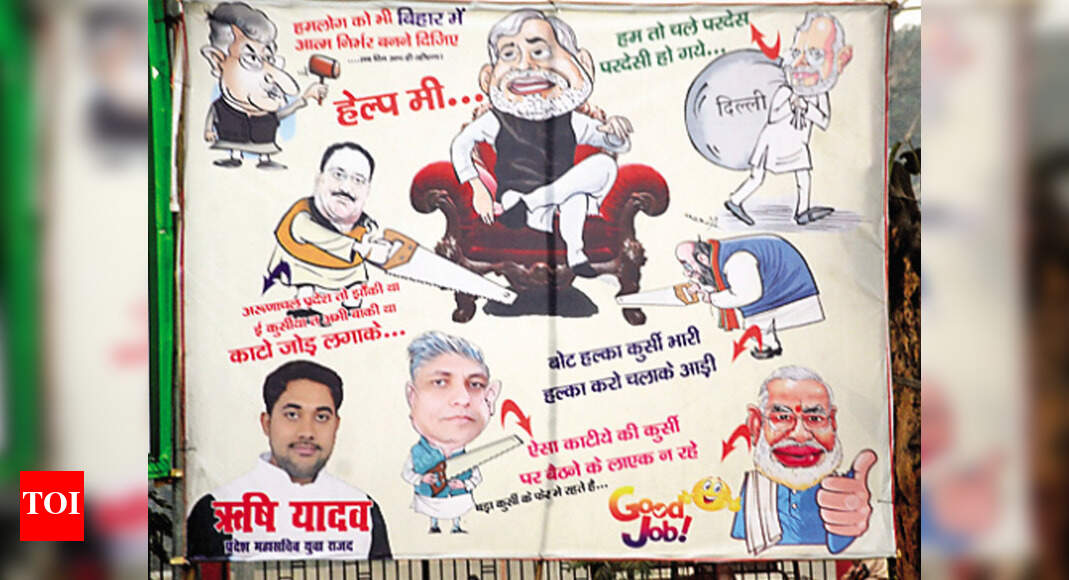 हमलोग को भी बिहार में
आत्म निर्भर बनने दिजिए
हेल्प मी...
हम तो चले परदेस
परदेसी हो गये...
दिल्ली
अरूणाचल प्रदेश तो झाँकी था
ई कुर्सीया त अभी बाकी था
काटो जोड़ लगाके...
बोट हल्का कुर्सी भारी
हल्का करो चलाके आड़ी
ऐसा काटीये की कुर्सी
पर बैठने के लाएक न रहे
बड़ा कुर्सी के फेर मे रहते है...
Good
Job!
ऋषि यादव
प्रदेश महासचिव युवा राजद
TOI